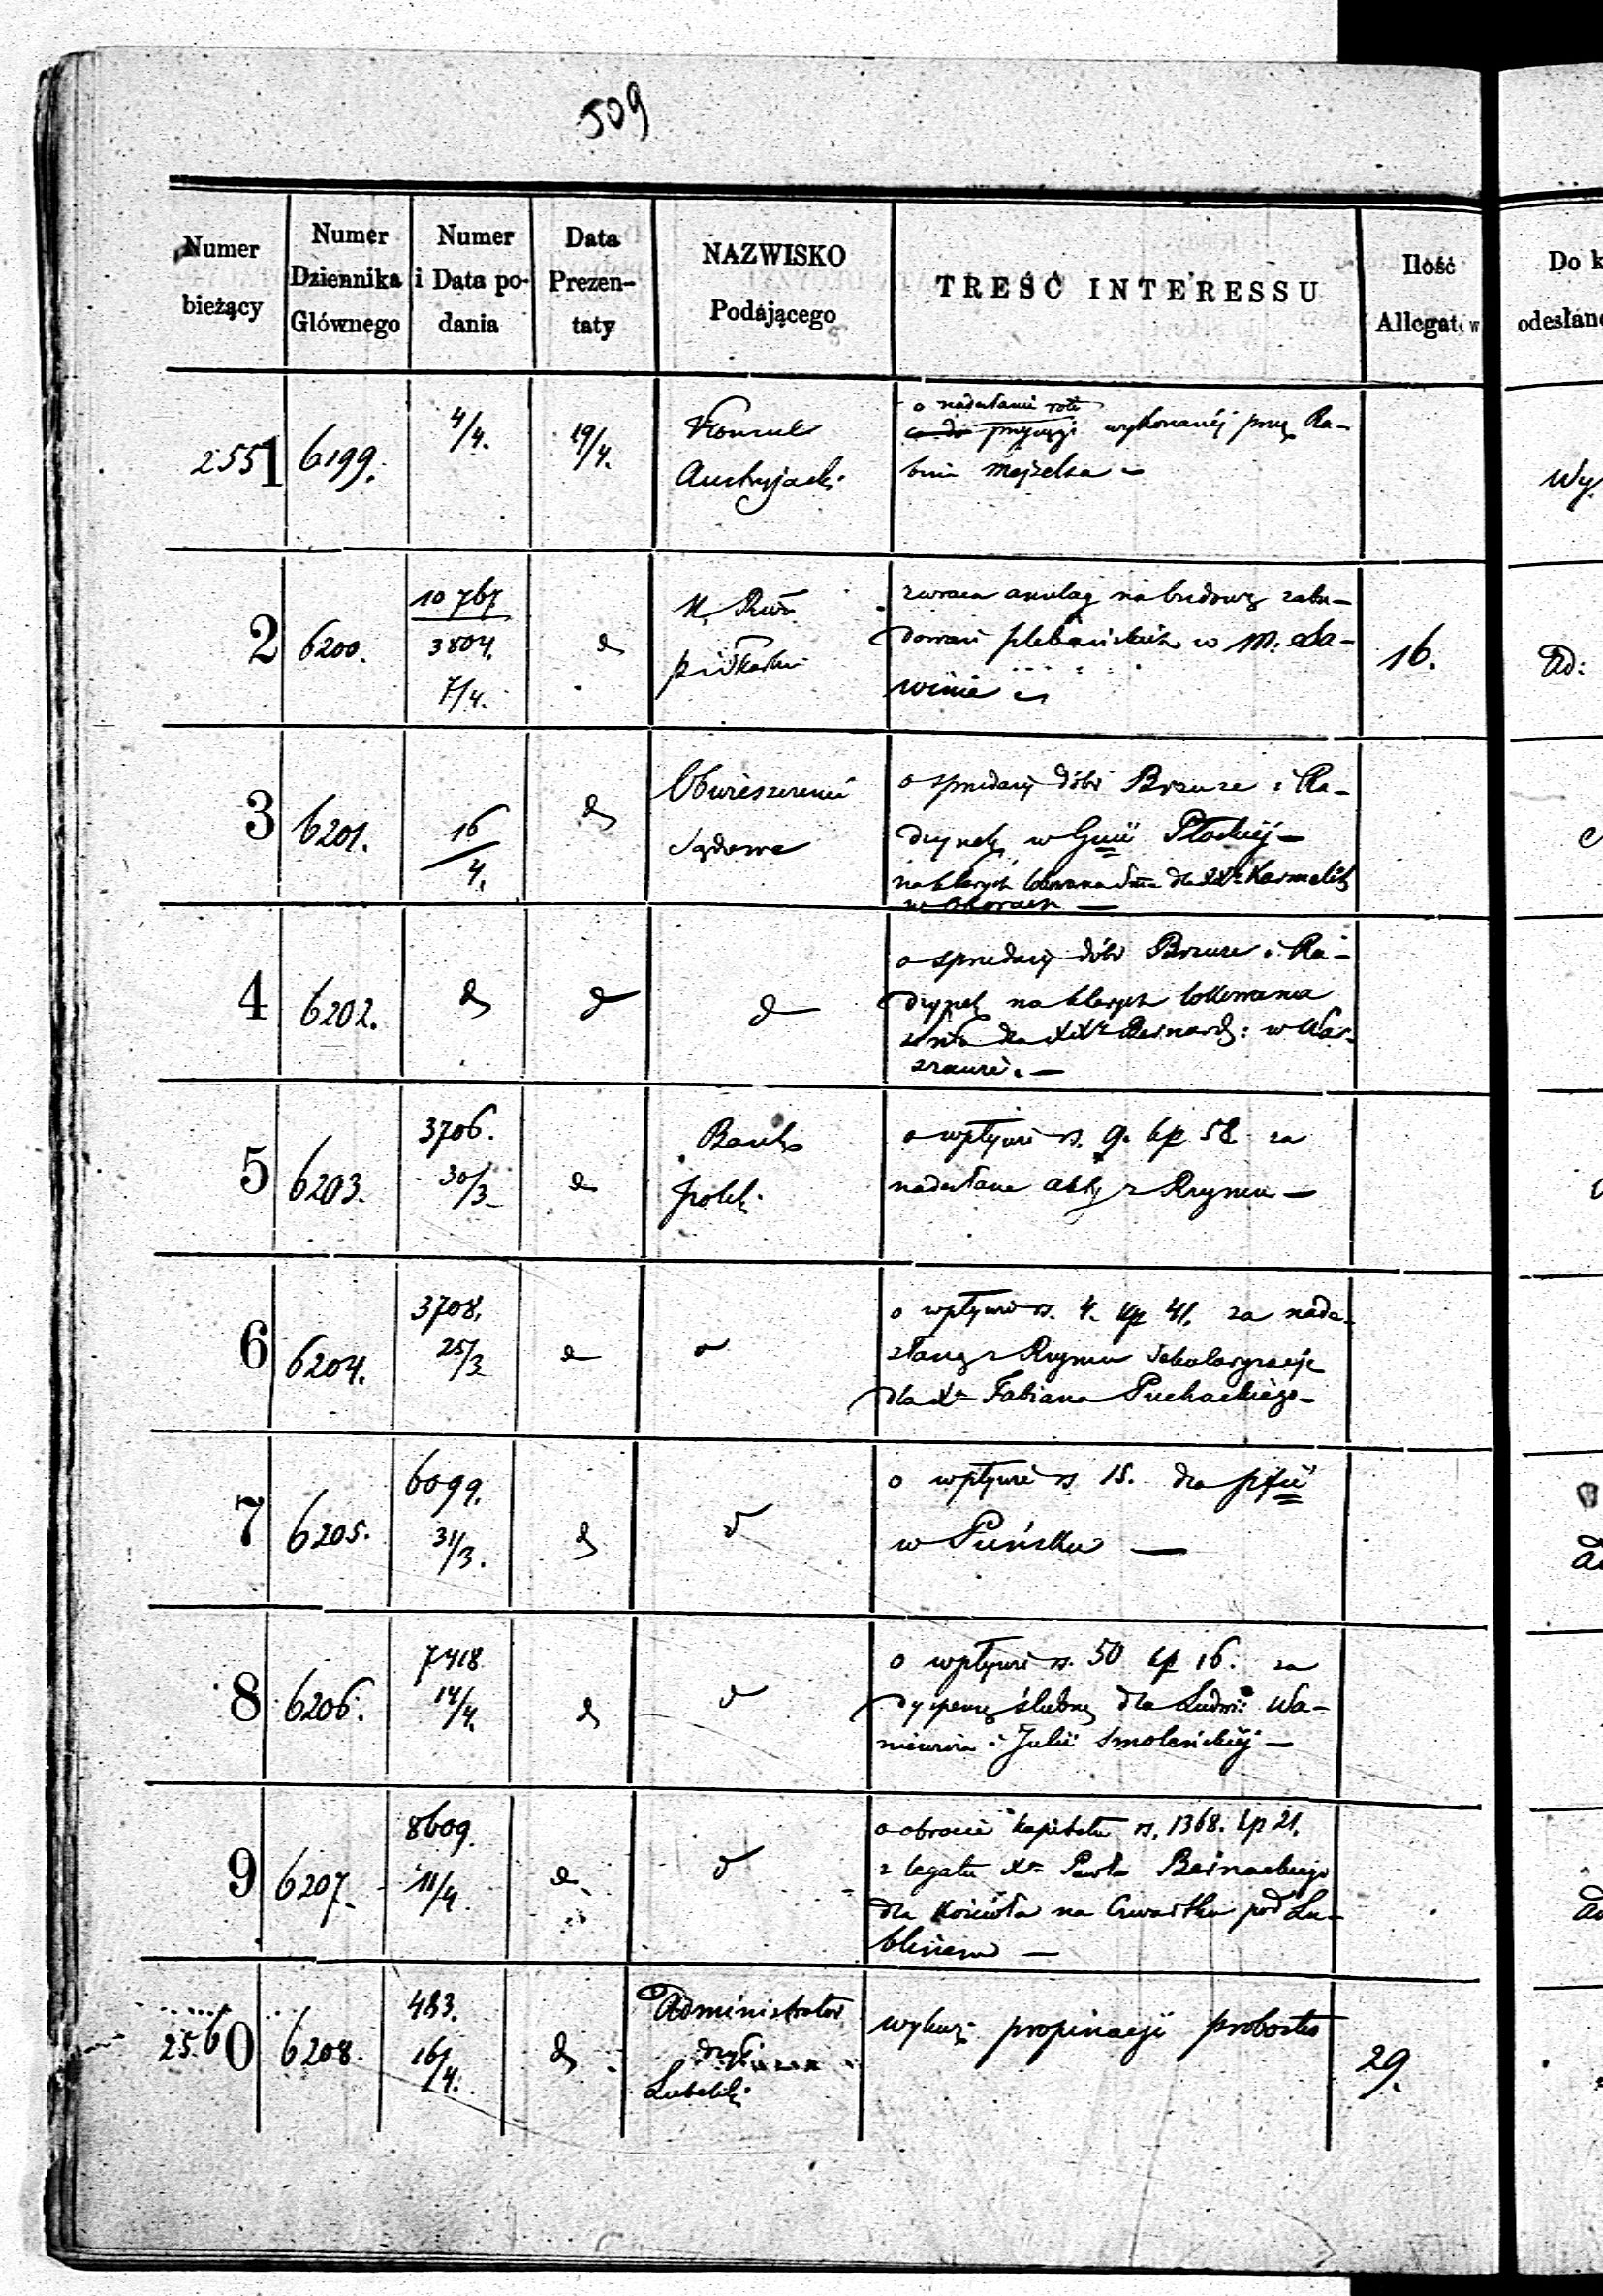 509
Numer bieżący
Numer Dziennika Głównego
Numer i Data podania
Data Prezentaty
NAZWISKO Podającego
TREŚĆ INTERESSU
Ilość Allegatów
Do k
odesłano
2551 6199. 4/4. 19/4.
Konsul
Austryjacki
o nadesłanie roty
co do przysięgi wykonanéj przez Ra-
bina Mejzelsa
Wy.
2 6200. 10767
3804.
7/4.
zwraca anszlag na budowę zabu-
dowań plebańskich w m. Sa-
winie
16.
Ad:
3 6201. 16/4.
Obwieszczenie
Sądowe
o sprzedaży dóbr Brzuze i Ra-
dzynek w Gunii Płockiéj —
na których lokowana dla XXy Karmelitów
w Oborach —
4 6202.
o sprzedaży dóbr Brzuze i Ra-
dzynek na których lokowana
dla XXy Bernard: w War-
szawie. —
5 6203. 3706.
30/3
Bank
polski
o wpływie rs. 9. kp 58 za
nadesłane akty z Rzymu —
6 6204. 3708.
25/3
o wpływie rs. 4. kp 41. za nade-
słaną z Rzymu sekularyzacje
dla Xa Fabiana Puchackiego —
7 6205. 6099.
31/3.
o wpływie rs. 15. dla pfii
w Puńsku —
8 6206. 7418
14/4.
o wpływie rs. 50 kp 16. za
dyspensę ślubną dla Ludw: Wa-
i Julii Smoleńskiéj —
9 6207. 8609.
11/4
o obrocie kapitału rs. 1368. kp 21.
z legatu Xa Pawła
dla kościoła na Czwartku pod Lu-
blinem —
2560 6208. 483.
16/4.
Administrator
Lubelski
wykaz propinacji probostw
29.